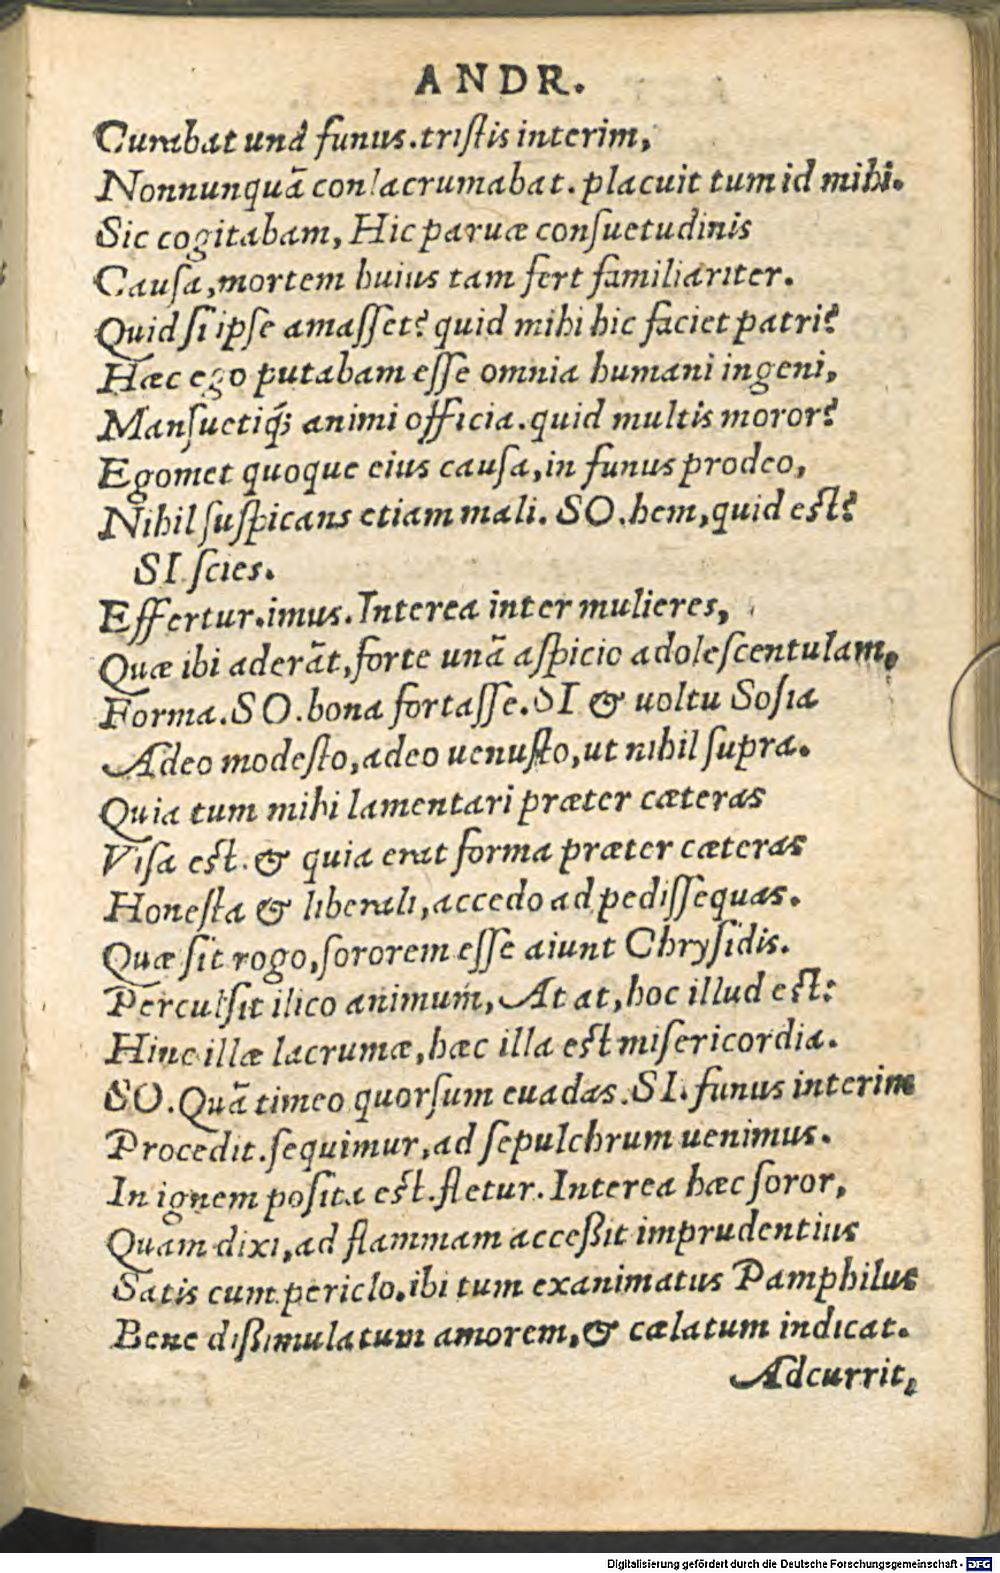 ANDR.
Curabat unà funus. tristis interim,
Nonnunquā conlacrumabat. placuit tum id mihi.
Sic cogitabam, Hic paruæ consuetudinis
Causa, mortem huius tam fert familiariter.
Quid si ipse amasset? quid mihi hic faciet patri?
Hæc ego putabam esse omnia humani ingeni,
Mansuetiq́; animi officia. quid multis moror?
Egomet quoque eius causa, in funus prodeo,
Nihil suspicans etiam mali. SO. hem, quid est?
SI. scies.
Effertur. imus. Interea inter mulieres,
Quæ ibi aderāt, forte unā aspicio adolescentulam,
Forma. SO. bona fortasse. SI & uoltu Sosia
Adeo modesto, adeo uenusto, ut nihil supra.
Quia tum mihi lamentari præter cæteras
Visa est. & quia erat forma præter cæteras
Honesta & liberali, accedo ad pedissequas.
Quæ sit rogo, sororem esse aiunt Chrysidis.
Perculsit ilico animum, At at, hoc illud est:
Hinc illæ lacrumæ, hæc illa est misericordia.
SO. Quā timeo quorsum euadas. SI. funus interim
Procedit. sequimur, ad sepulchrum uenimus.
In ignem posita est. fletur. Interea hæc soror,
Quam dixi, ad flammam acceßit imprudentius
Satis cum periclo. ibi tum exanimatus Pamphilus
Bene dißimulatum amorem, & cælatum indicat.
Adcurrit,
Digitalisierung gefördert durch die Deutsche Forschungsgemeinschaft - DFG